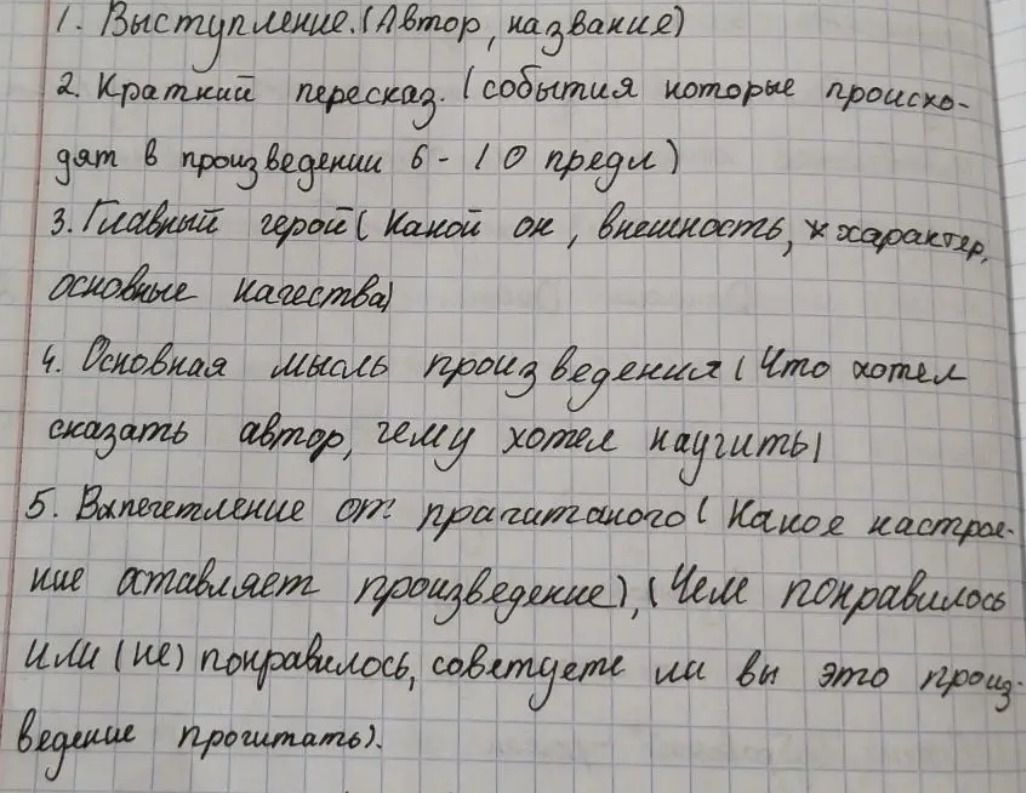 1. Выступление. (Автор, название)
2. Краткий пересказ. (события которые происхо-
дят в произведении 6-10 предл)
3. Главный герой (Какой он, внешность, характер,
основные качества)
4. Основная мысль произведения (Что хотел
сказать автор, чему хотел научить)
5. Впечетление от прачитаного (Какое настрое-
ние оставляет произведение), (Чем понравилось
или (не) понравилось, советуете ли вы это произ-
ведение прочитать).